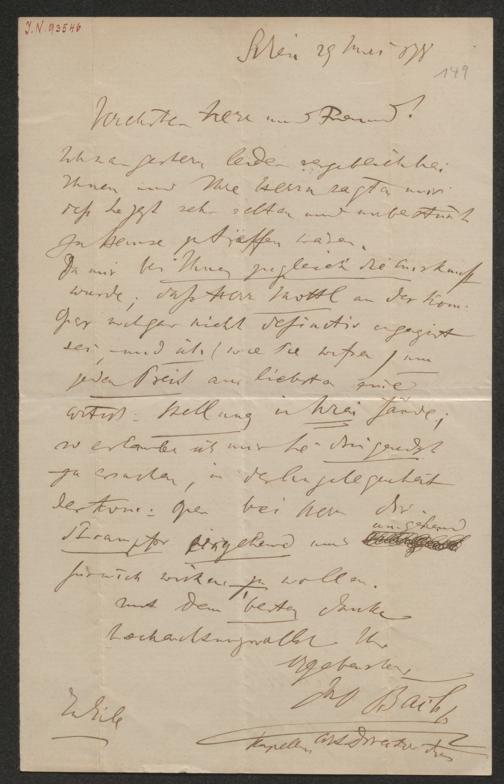 I.N. 93546
Wien 29 Mai 878
149
Verehrter Herr und Freund!
gestern leider vergeblich bei
Ihnen und Ihre sagten mir
daß Sie jetzt sehr selten und unbestimmt
zu Hause zu treffen wären.
Da mir bei Ihnen zugleich die Auskunft
wurde, daß Herr Mottl an der Kom.
Oper nicht definitiv engagirt
sei, und ich (wie Sie wissen) um
jeden Preis am liebsten eine
artist. Stellung in Wien fände;
so erlaube ich mir Sie dringendst
zu ersuchen, in der Angelegenheit
der Kom. Oper bei Herrn Dir.
umgehend
Strampfer eingehend und
für mich wirken zu wollen.
Mit dem besten Danke
hochachtungsvollst Ihr
ergebenster
Bach
Eile
Kapellm